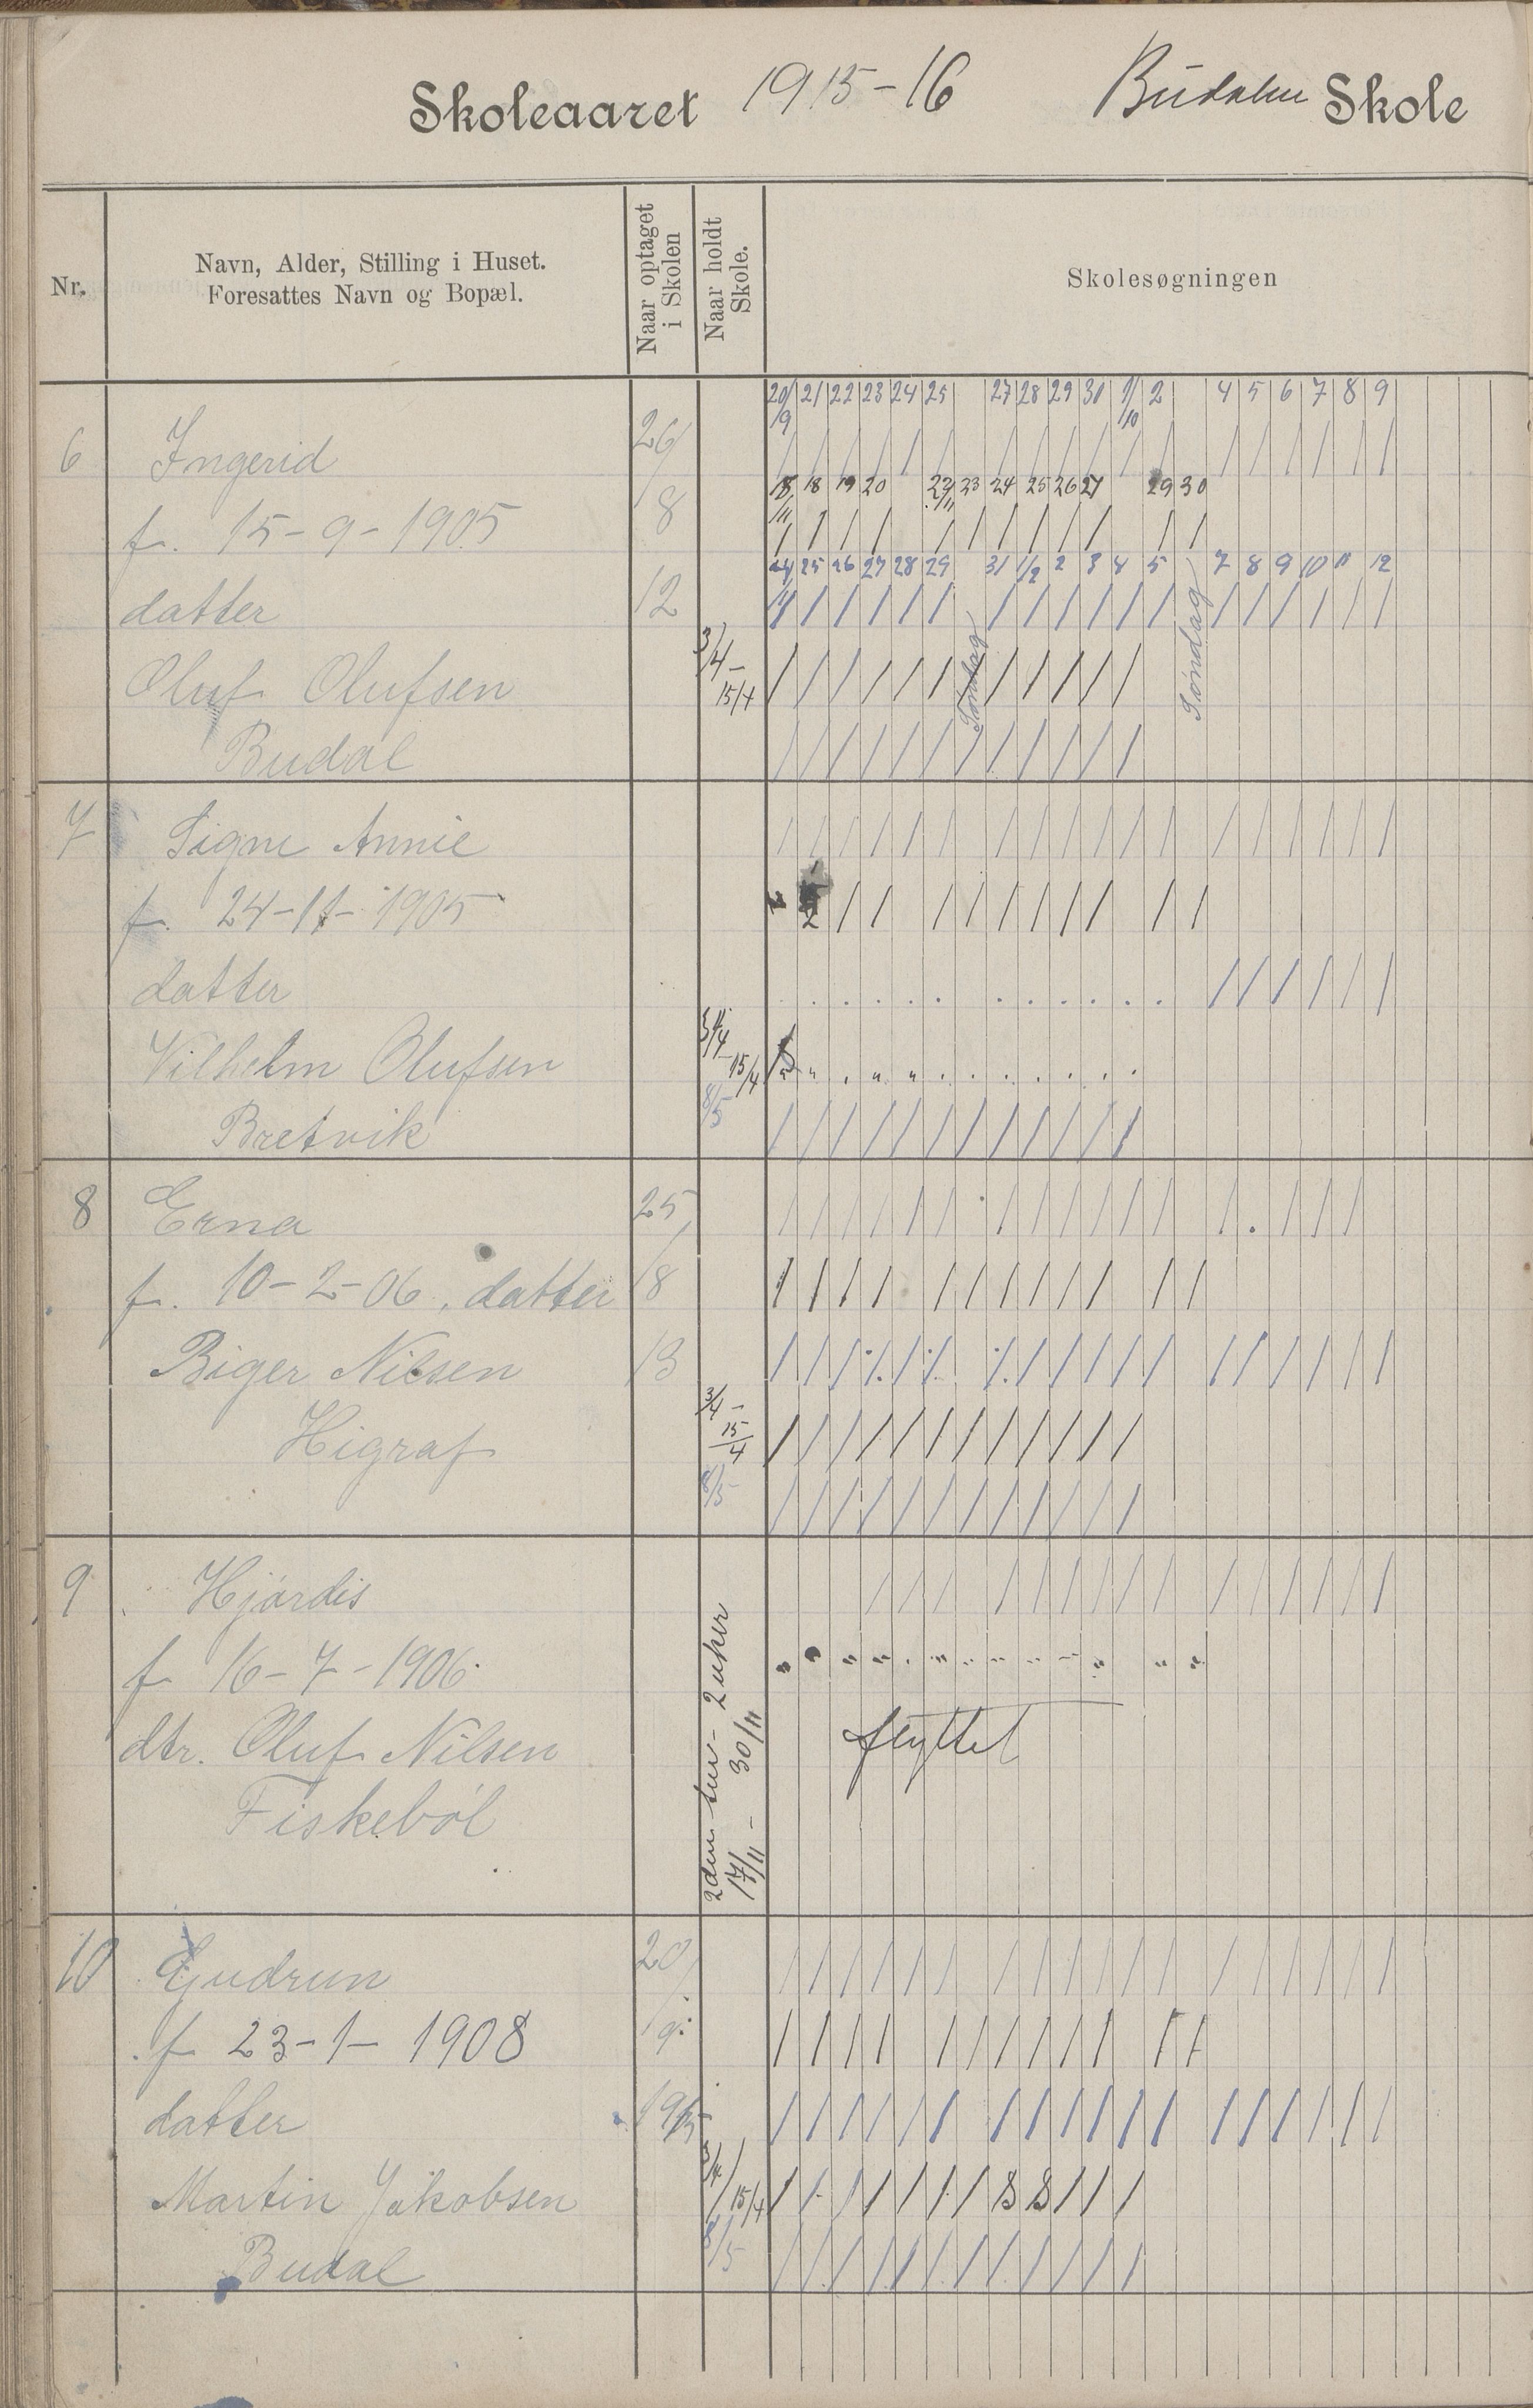 Skoleaaret 1915-16 Budalen Skole
Nr.
Navn, Alder, Stilling i Huset.
Foresattes Navn og Bopæl.
Naar optaget
i Skolen
Naar holdt
Skole.
Skolesøgningen
20/9 21 22 23 24 25 27 28 29 30 1/10 2 4 5 6 7 8 9
6 Ingerid 26/
18 19 20 22/11 23 24 25 26 27 29 30
f. 15-9-1905 8
24 25 26 27 28 29 31 1/2 2 3 4 5 7 8 9 10 11 12
datter 12
Søndag Søndag
Oluf Olufsen 3/4 - 15/4
Budal
7 Signe Annie
f. 24-11-1905
datter
Vilhelm Olufsen 3/4 15/4
Bretvik 8/5
8 Erna 25/
f. 10-2-06, datter 8
Biger Nilsen 13
Higraf 3/4 - 15/4
8/5
9 Hjørdis
f 16-7-1906
dtr. Oluf Nilsen flyttet
Fiskebøl
2den tur - 2 uker
17/11 - 30/11
10 Gudrun 20/
f 23-1-1908 9
datter 1915
Martin Jakobsen 3/4 15/4
Budal 8/5